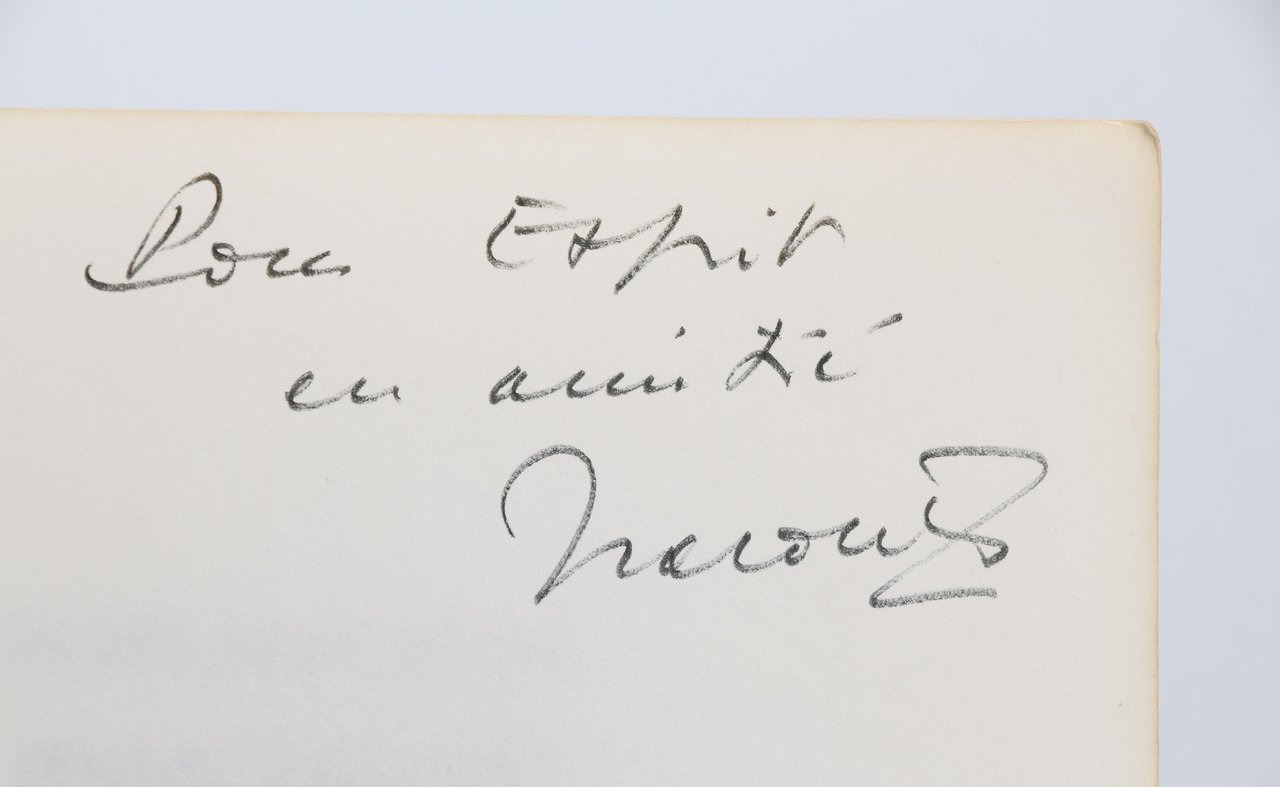 Pour Esprit
en amitié